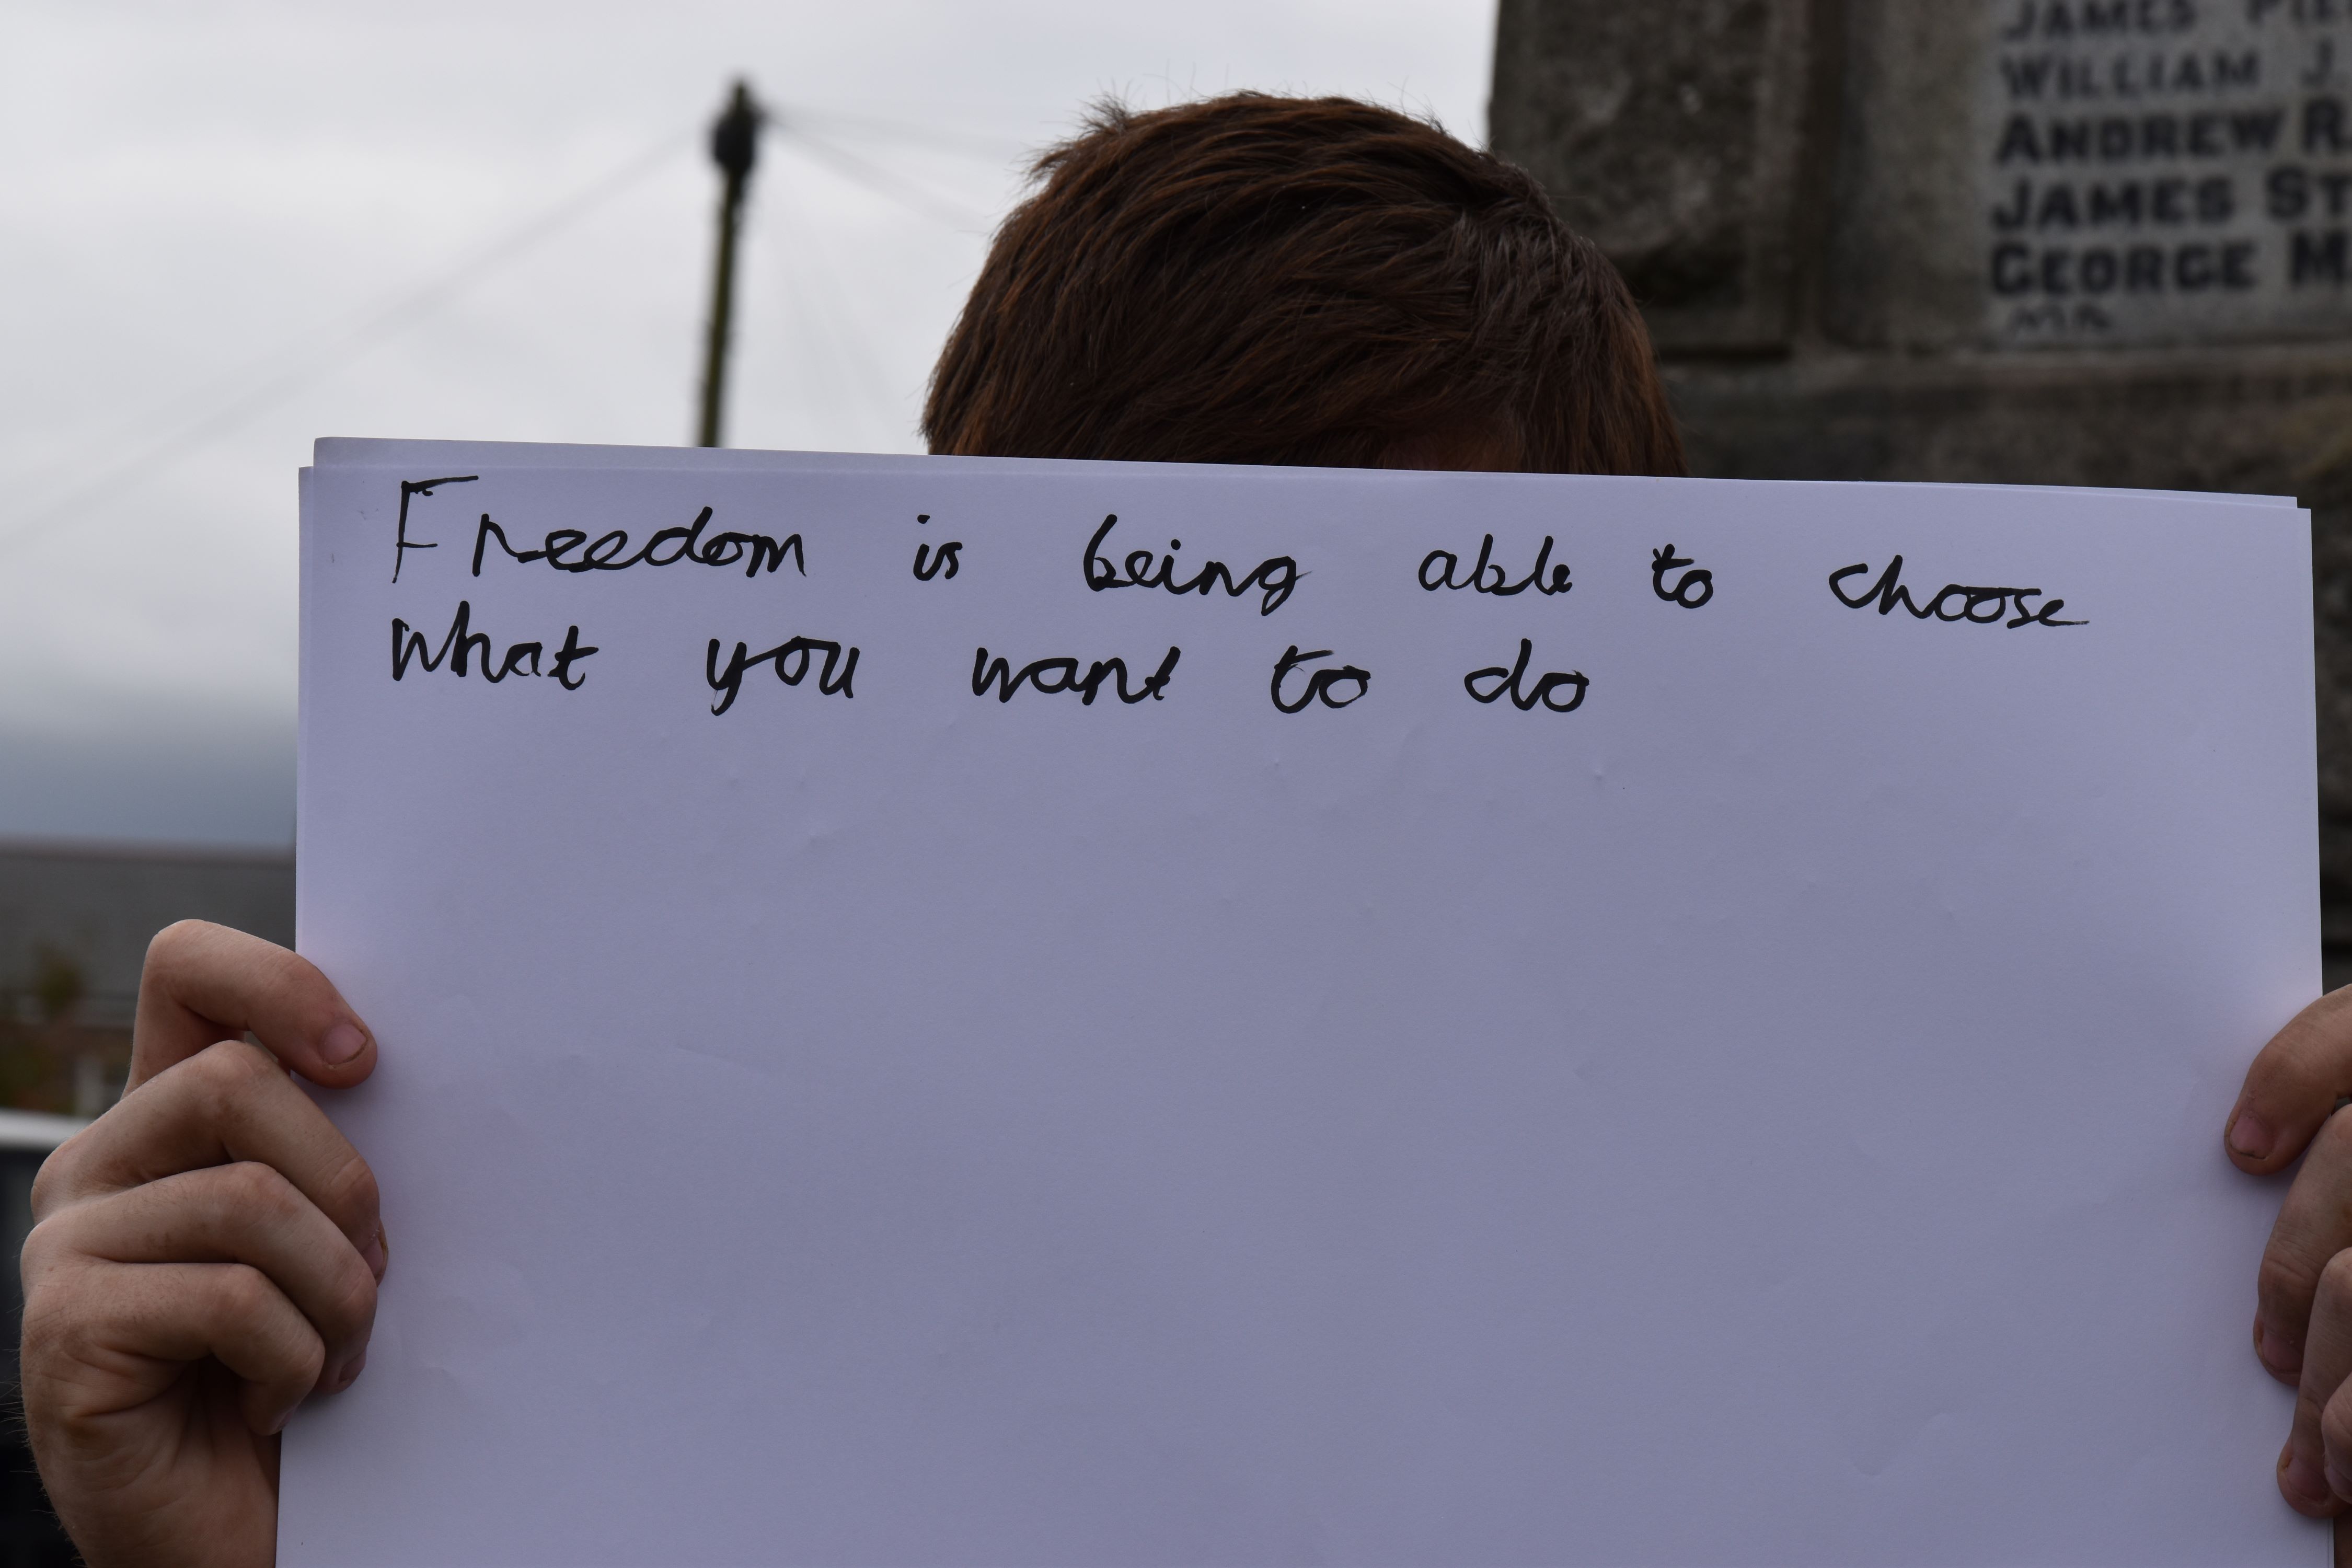 JAMES
WILLIAM J.
ANDREW R
JAMES ST
GEORGE M
Freedom is being able to choose
what you want to do